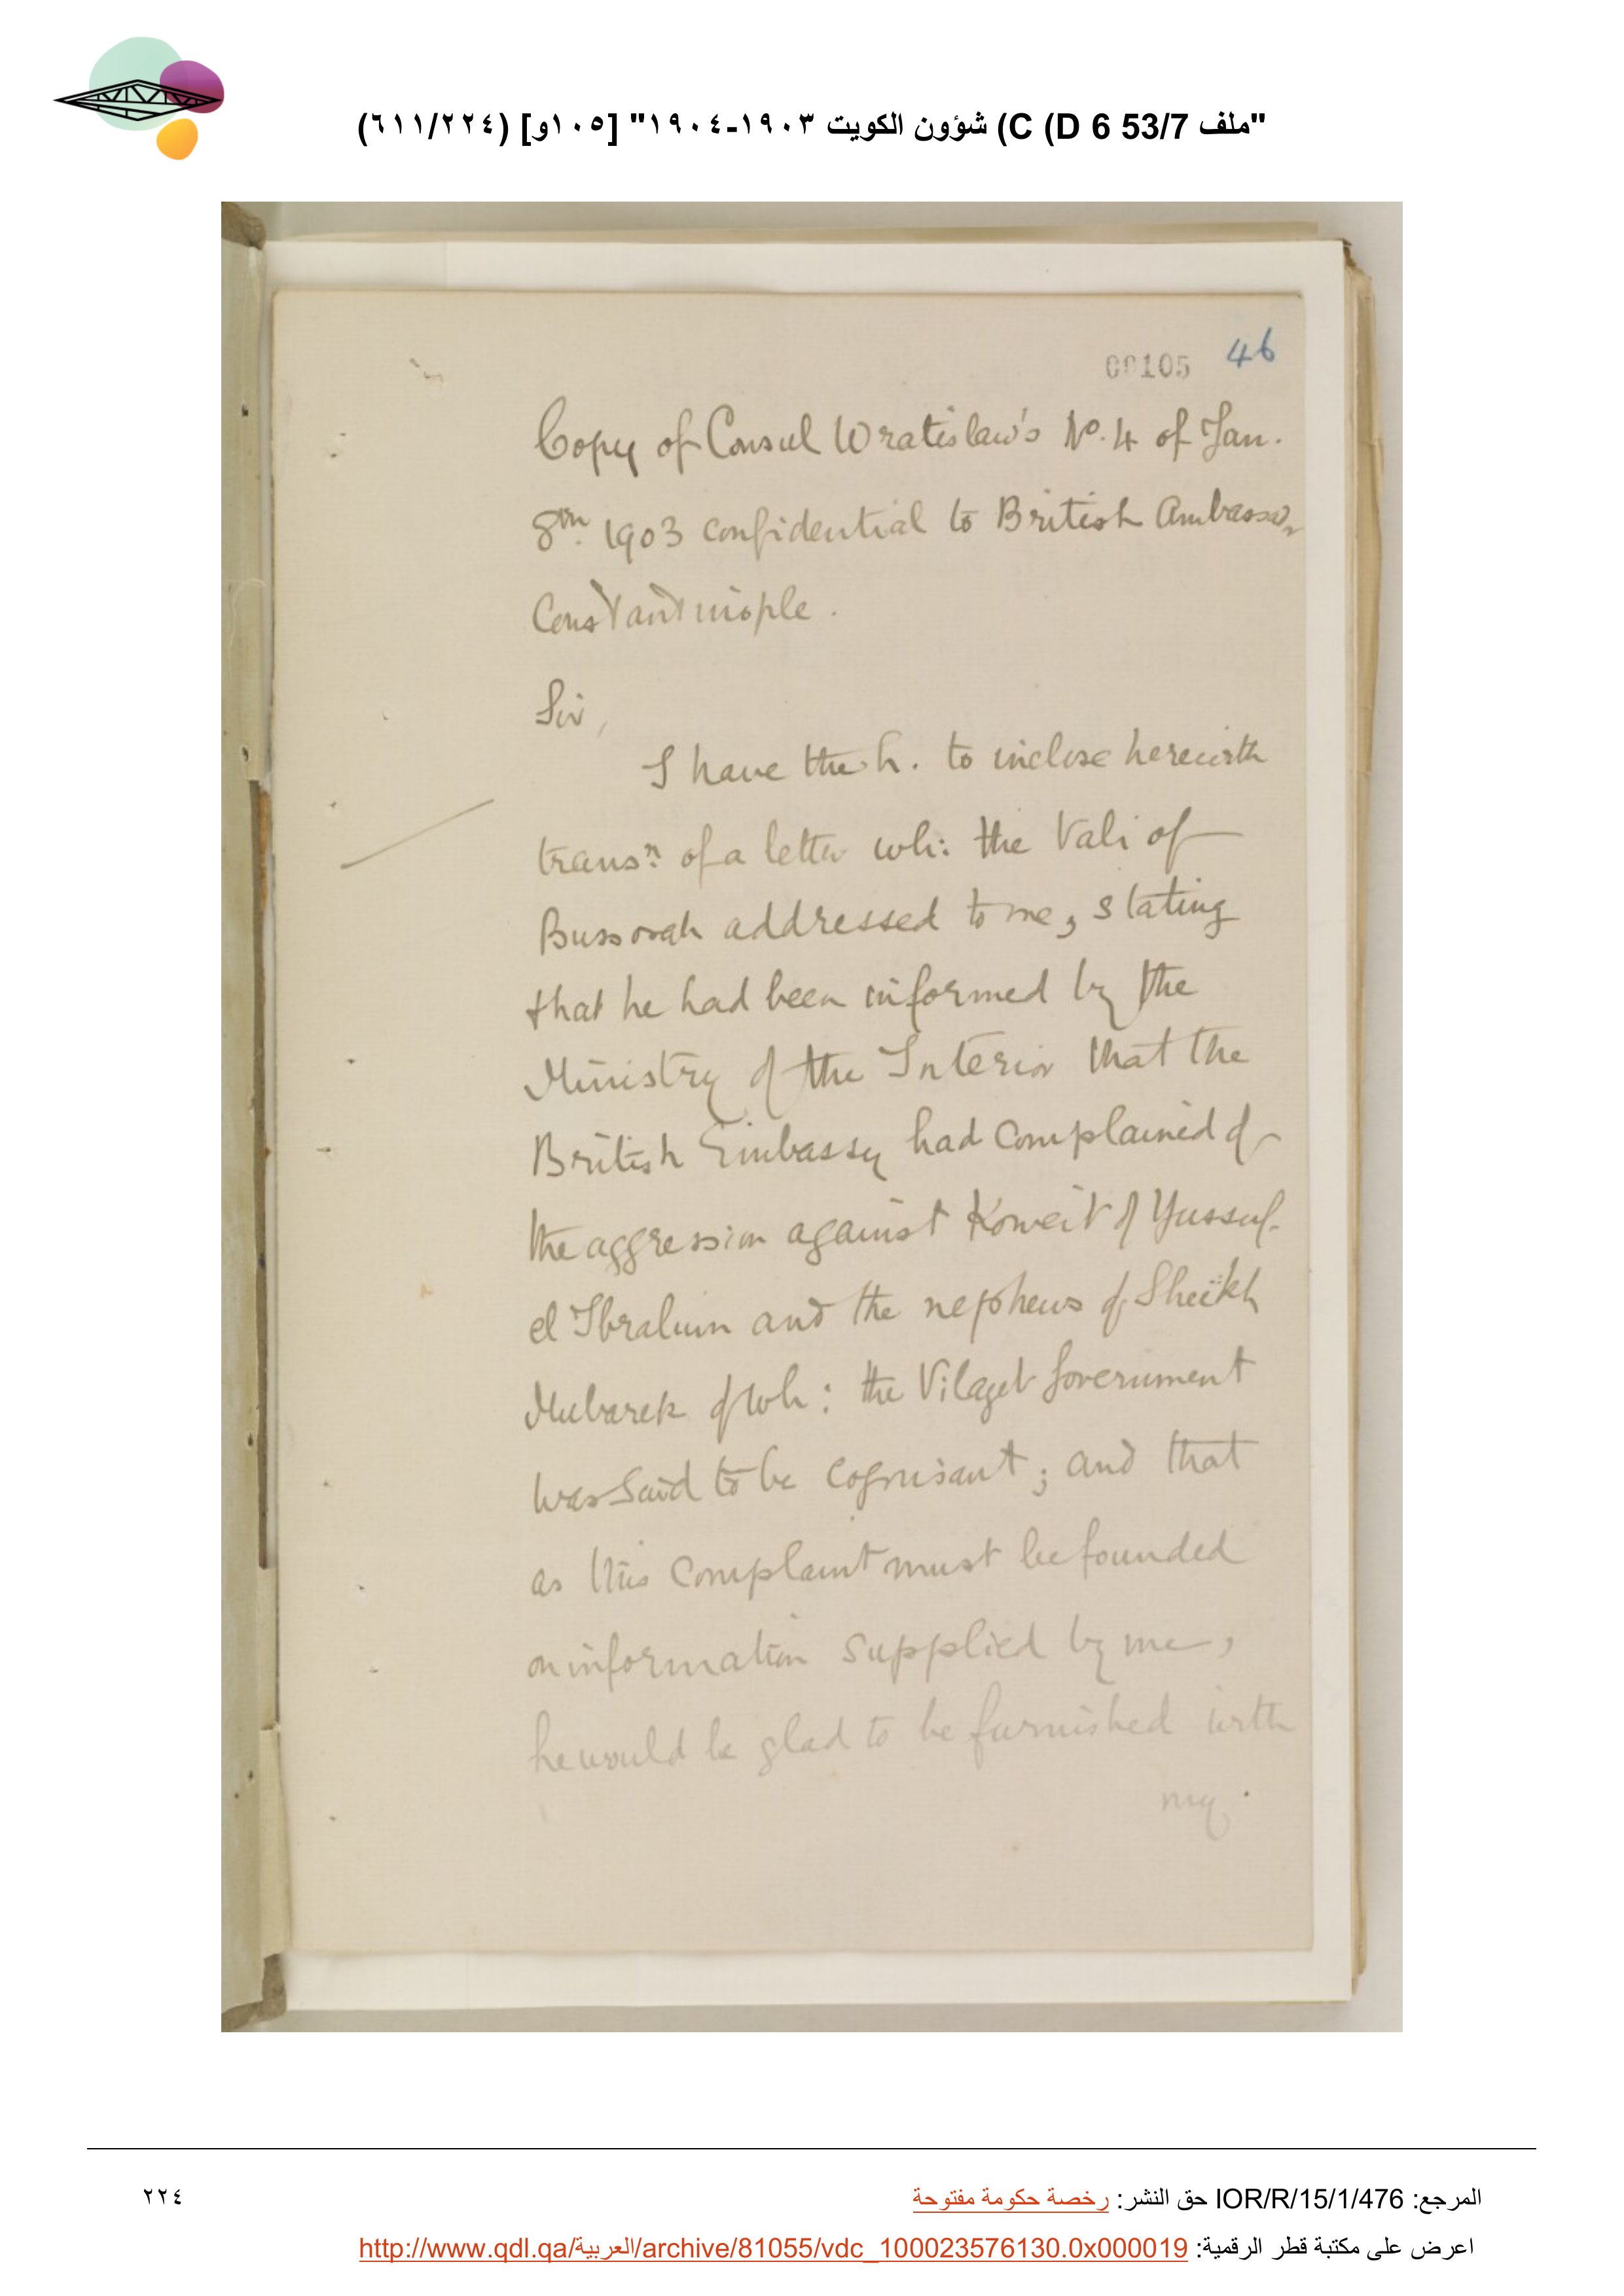 "ملف 53/7 C (D 6) شؤون الكويت ١٩٠٣-١٩٠٤" [١٠٥و] (٦١١/٢٢٤)
00105 46
Copy of Consul Wratislaw's No. 4 of Jan.
8th. 1903 confidential to British Ambassr
Constantinople.
Sir,
I have the h. to inclose herewith
transn. of a letter wh: the Vali of
Bussorah addressed to me, stating
that he had been informed by the
Ministry of the Interior that the
British Embassy had complained of
the aggression against Koweit of Yussuf-
el Ibrahim and the nephews of Sheikh
Mubarek of wh: the Vilayet Government
was said to be cognisant; and that
as this complaint must be founded
on information supplied by me,
he would be glad to be furnished with
my.
المرجع: IOR/R/15/1/476 حق النشر: رخصة حكومة مفتوحة
٢٢٤
اعرض على مكتبة قطر الرقمية: http://www.qdl.qa/العربية/archive/81055/vdc_100023576130.0x000019